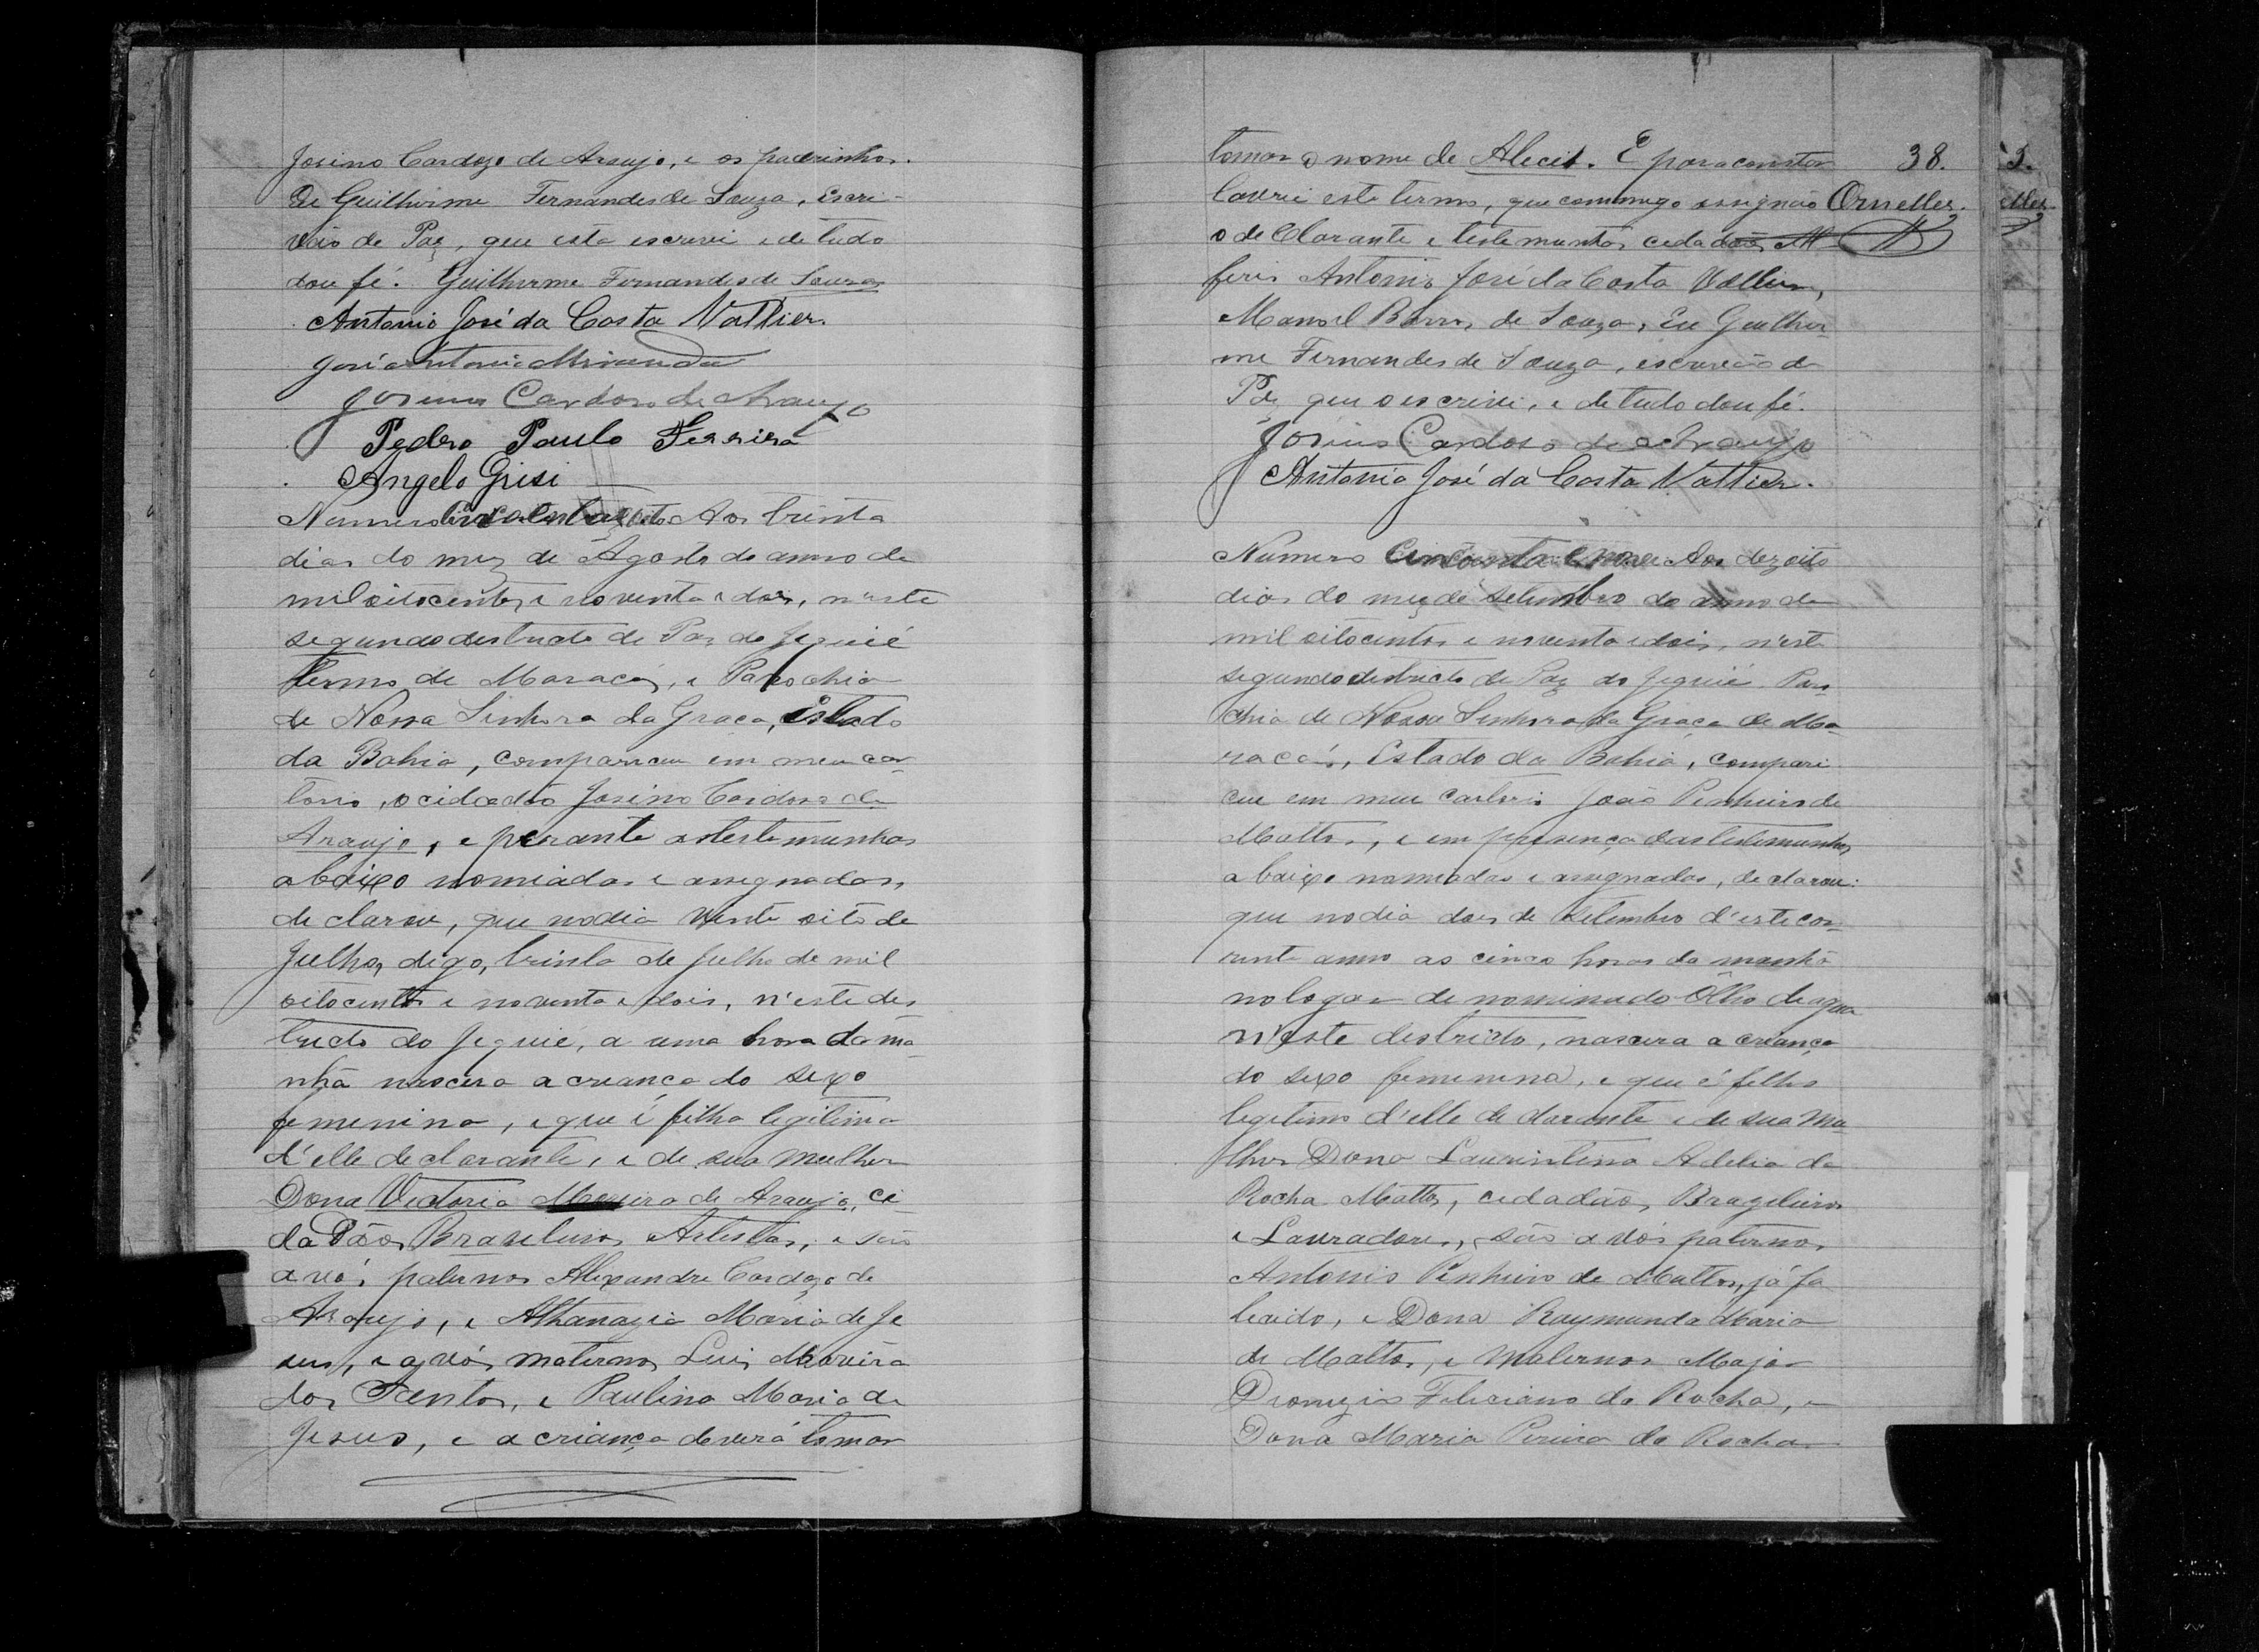 Josino Cardozo de Araujo, e os padrinhos.
De Guilherme Fernandes de Souza, Escri-
vão de Paz, que esta escrevi e de tudo
dou fé. Guilherme Fernandes de Souza
Antonio José da Costa Vattier.
José Antonio Miranda
Josino Cardoso de Araujo
Pedro Paulo Ferreira
Angelo Grisi
Numero cincoenta e oito Aos trinta
dias do mez de Agosto do anno de
mil oitocentos e noventa e dois, n'este
segundo destricto de Paz do Jequié
termo de Maracás, e Parochia
de Nossa Senhora da Graça, Estado
da Bahia, compareceu em meu car-
torio, o cidadão Josino Cardoso de
Araujo, e perante as testemunhas
abaixo nomiadas e assignadas,
declarou, que no dia vinte oito de
Julho, digo, trinta de Julho de mil
oitocentos e noventa e dois, n'este des
tricto do Jequié, a uma hora da ma-
nhã nascera a creança do sexo
femenino, e que é filha legitima
d'elle declarante, e de sua mulher
Dona Victoria Moreira de Araujo, ci-
dadãos Brasileiros Artistas, e são
avós paternos Alexandre Cardozo de
Araujo, e Athanazia Maria de Je
sus, e avós maternos Luis Moreira
dos Santos, e Paulina Maria de
Jesus, e a criança deverá tomar
tomar o nome de Alecio. E para constar
lavrei este termo, que commigo assignão
o declarante e testemunhas cidadãos Al
feris Antonio José da Costa Vattier,
Manoel Barros de Souza, Eu Guilher-
me Fernandes de Souza, escrivão de
Paz que o escrevi, e de tudo dou fé.
Josino Cardoso de Araujo
Antonio José da Costa Vattier.
38.
Ornelles.
Numero Cincoenta e nove Aos dezoito
dias do mez de Setembro do anno de
mil oitocentos e noventa e dois, n'este
segundo destricto de Paz do Jequié Paro
chia de Nossa Senhora da Graça de Ma-
racás, Estado da Bahia, compare
ceu em meu cartorio João Pinheiro de
Mattos, e em presença das testemunhas
abaixo nomeadas e assignadas, declarou:
que no dia dois de Setembro d'este cor-
rente anno as cinco horas da manhã
no logar denominado Olho de agua
n'este destricto, nascera a creança
do sexo femenina, e que é filha
legitimo d'elle declarante e de sua Mu-
lher Dona Laurintina Adelia da
Rocha Mattos, cidadãos Brazileiros
e Lavradores, são avós paternos
Antonio Pinheiro de Mattos, já fa
lecido, e Dona Raymunda Maria
de Mattos, e Maternos Major
Dionizio Feliciano da Rocha, e
Dona Maria Pereira da Rocha